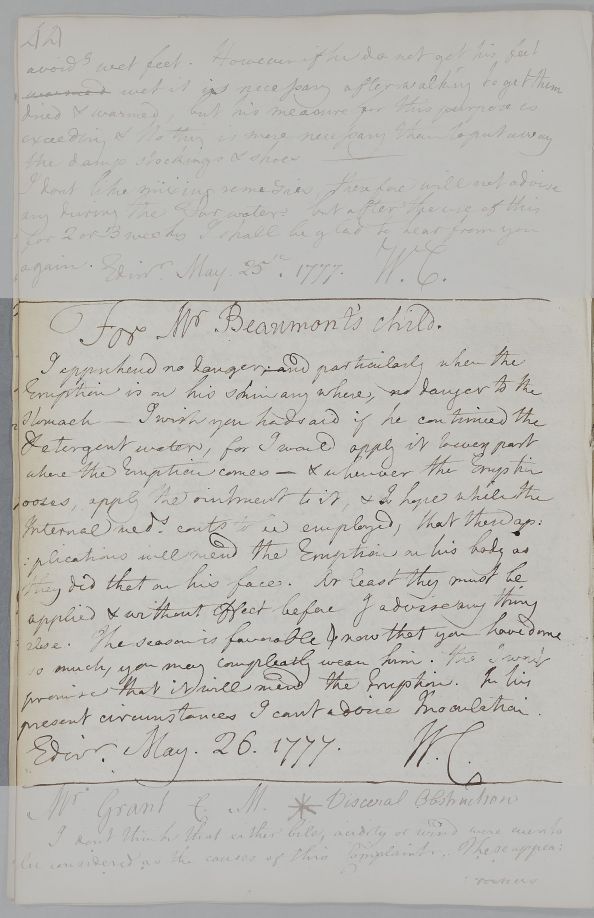 42
avoids wet feet. However if he do not get his feet
warmed wet it is necessary after walking to get them
dried & warmed, but his measure for this purpose is
exceeding & Nothing is more necessary than to put away
the damp stockings & shoes
I dont like mixing remedies, therefore will not advise
any during the water: but after the use of this
for 2 or 3 weeks I shall be glad to hear from you
again. Edinr. May. 25th. 1777. W. C.
For Mr Beaumont's child.
I apprehend no danger, and particularly when the
Eruption is on his skin any where, no danger to the
Stomach — I wish you had said if he continued the
Detergent water, for I would apply it to every part
where the Eruption comes — & wherever the Eruptn
oozes, apply the ointment to it, & I hope while the
Internal meds. conts to be employed, that these ap:
:plications will mend the Eruption on his body as
they did that on his face. At least they must be
applied & without effect before I advise any thing
else. The season is favorable & now that you have done
so much, you may compleatly wean him. tho I won't
promise that it will mend the Eruption. In his
present circumstances I cant advise Inoculation.
Edinr. May. 26. 1777. W. C.
Mr. Grant C. M. Visceral Obstruction
I dont think that either bile, acidity or wind were
be considered as the causes of this Complaint. These appea: